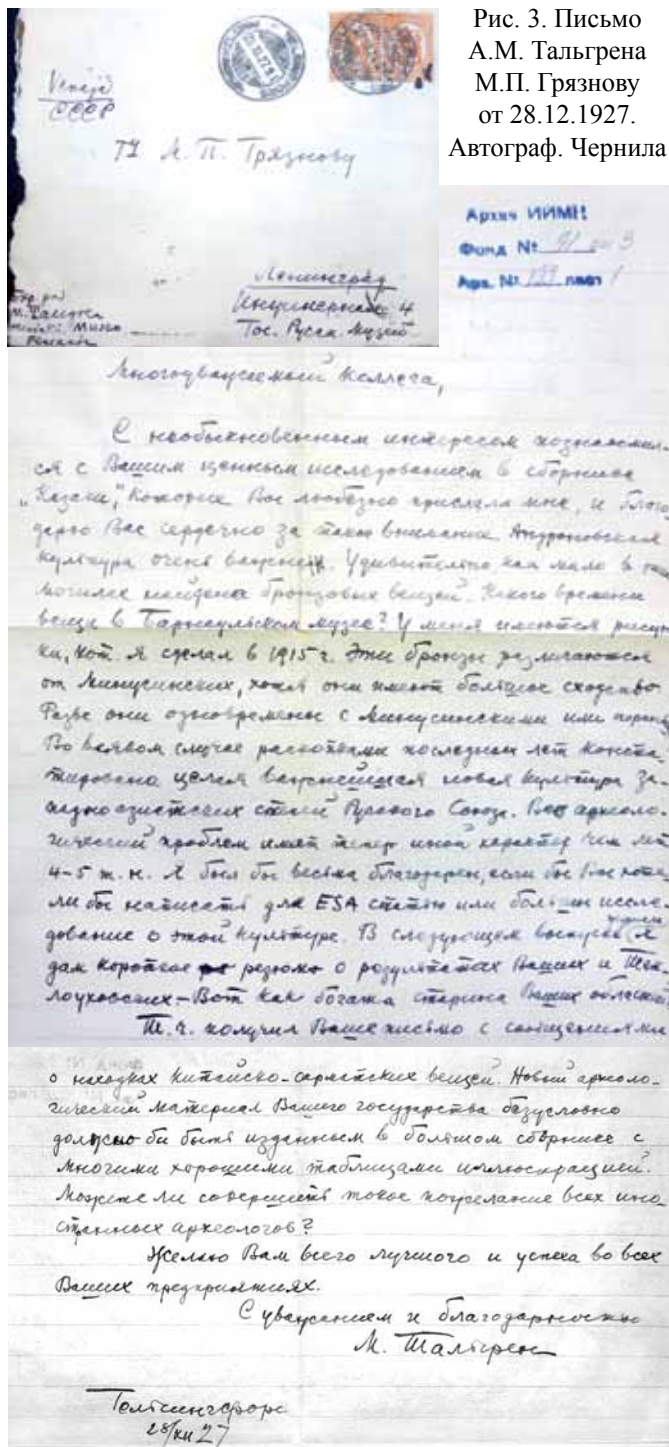 Рис. 3. Письмо
А.М. Тальгрена
М.П. Грязнову
от 28.12.1927.
Автограф. Чернила
Venäjä
СССР
М. П. Грязнову
Ленинград
Инженерная 4
Гос. Русск. Музей
Архив ИИМК
Фонд № 91 оп 3
Арх. № лист 1
Многоуважаемый Коллега,
С необыкновенным интересом познакомил-
ся с Вашим ценным исследованием в сборнике
„Казаки", которые Вы любезно прислали мне, и благо
дарю Вас сердечно за такое внимание. Андроновская
культура очень важная. Удивительно как мало в
могилах найдено бронзовых вещей. Какого времени
вещи в Барнаульском музее? У меня имеются рисун
ки, кот. я сделал в 1915 г. Эти бронзы различаются
от Минусинских, хотя они имеют большое сходство
Разве они одновременны с Минусинскими или
Во всяком случае раскопками последних лет конста-
тирована целая важнейшая новая культура за-
падно азиатских степей Русского Союза. Вся археоло-
гический проблем имеет тепер иной характер чем лет
4-5 т. н. Я был бы весьма благодарен, если бы Вы хоте
ли бы написать для ESA статью или больш иссле-
дование о этой культуре. В следующем выпуске я
дам короткое резюме о результатах Ваших и Теп
лоуховских – Вот как богата старина Ваших областей
Т. ч. получил Ваше письмо с сообщениями
о находках китайско-сарматских вещей. Новый археоло-
гический материал Вашего государства безусловно
должно би быть изданным в большом сборнике с
многими хорошими таблицами иллюстрацией.
Можете ли совершить такое пожелание всех ино
странных археологов?
Желаю Вам всего лучшого и успеха во всех
Ваших предприятиях.
С уважением и благодарностью
М. Тальгрен
Гельсингфорс
28/XII 27